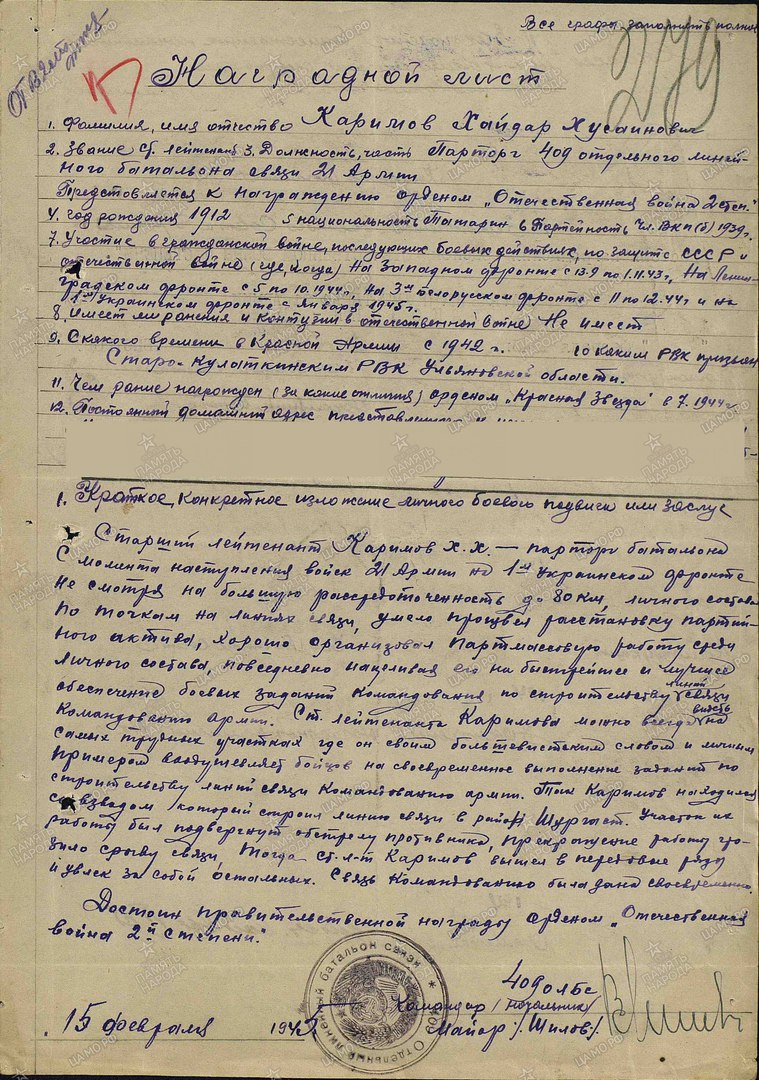 Все графы заполнять полно
279
Наградной лист
1. Фамилия, имя отчество Каримов Хайдар Хусаинович
2. Звание Ст. лейтенант 3. Должность, часть Парторг 409 отдельного линей-
ного батальона связи 21 Армии
Представляется к награждению орденом „Отечественная война 2 степ."
4. год рождения 1912 5 национальность Татарин 6 Партейность Чл. ВКП(б) 1939г.
7. Участие в гражданской войне, последующих боевых действиях, по защите СССР и
отечественной войне (где, когда) На Западном фронте с 13.9 по 1.11.43г., На Ленин-
градском фронте с 5 по 10.1944г, на 3ем Белорусском фронте с 11 по 12.44г и на
1ом Украинском фронте с Января 1945г.
8. Имеет ли ранения и контузии в отечественной войне Не имеет
9. С какого времени в Красной Армии с 1942 г. 10 каким РВК призван
Старо-Кулаткинским РВК Ульяновской области.
11. Чем ранее награжден (за какие отличия) орденом „Красная Звезда" в 7.1944г
12. Постоянный домашний адрес
1. Краткое, конкретное изложение личного боевого подвига или заслуг
Старший лейтенант Каримов Х.Х. — парторг батальона
С момента наступления войск 21 Армии на 1ом Украинском фронте
Не смотря на большую рассредоточенность до 80 км, личного состава
по точкам на линиях связи, умело провел расстановку партий-
ного актива, хорошо организовал партмассовую работу среди
личного состава, повседневно нацеливая его на быстрейшее и лучшее
обеспечение боевых заданий командования по строительству линий связи
Командованию армии. Ст. лейтенанта Каримова можно всегда видеть на
самых трудных участках где он своим большевистским словом и личным
примером воодушевляет бойцов на своевременное выполнение заданий по
строительству линий связи Командованию армии. Так Каримов находился
со взводом который строил линию связи в район Шургаст. Участок их
работы был подвергнут обстрелу противника, прекращение работы гро-
зило срыву связи, тогда ст. л-т Каримов вышел в передовые ряды
и увлек за собой остальных. Связь Командованию была дана своевременно.
Достоин правительственной награды орденом „Отечественная
война 2й степени."
409 олбс
Командир (начальник)
15 февраля 1945 Майор /Шилов/
Отдельный линейный батальон связи * 409